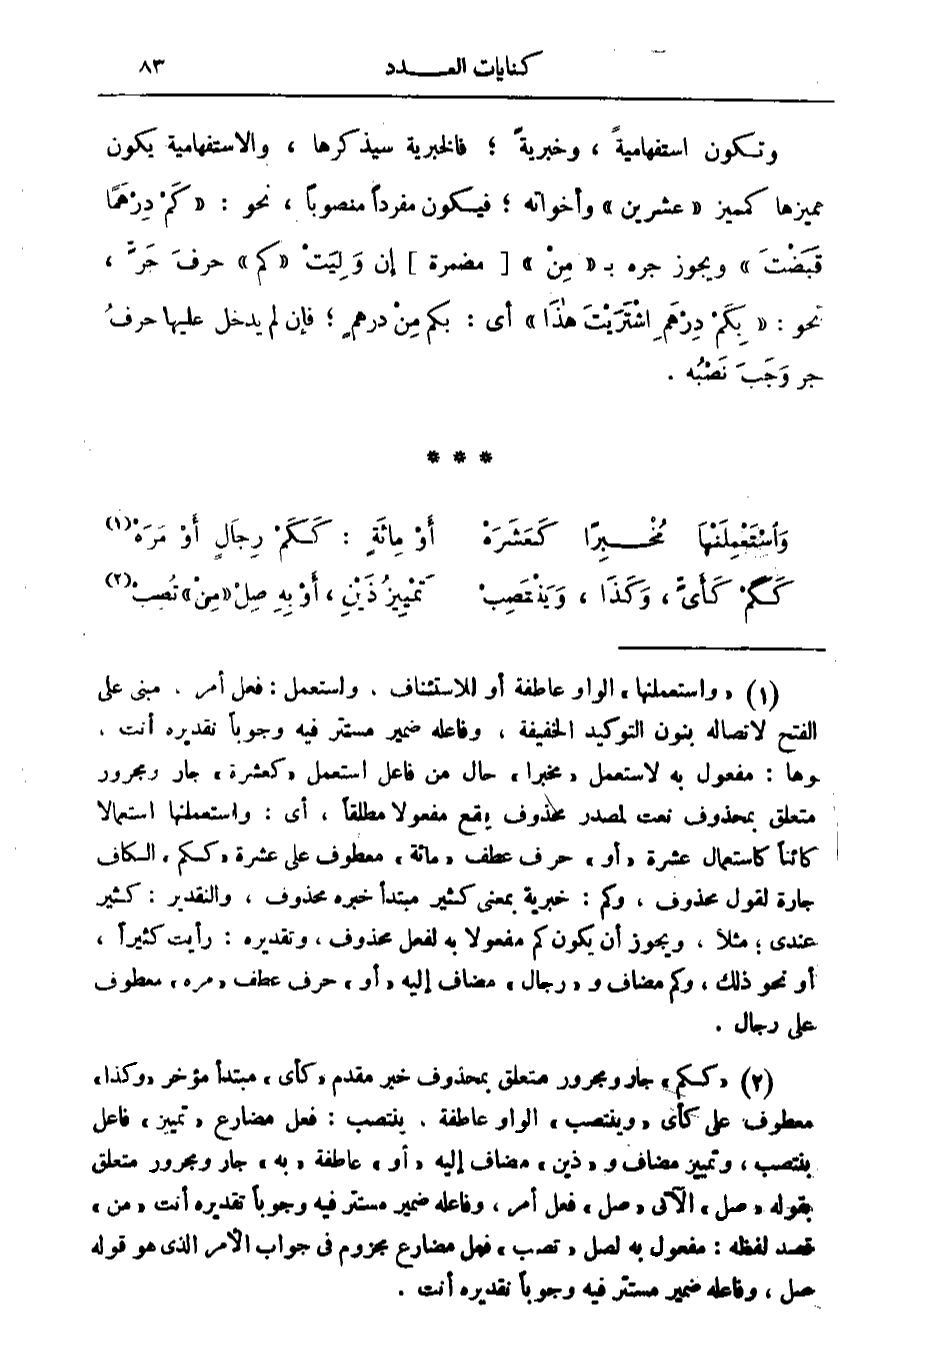 كنايات العـــدد ٨٣
وتكون استفهاميةً ، وخبريةً ؛ فالخبرية سيذكرها ، والاستفهامية يكون
مميزها كمميز « عشرين » وأخواته ؛ فيكون مفرداً منصوباً ، نحو : « كَمْ دِرْهَمًا
قَبَضْتَ » ويجوز جره بـ « مِنْ » [ مضمرة ] إن وَلِيَتْ « كم » حرفَ جَرٍّ ،
نحو : « بِكَمْ دِرْهَمٍ اشْتَرَيْتَ هٰذَا » أى : بكم مِنْ درهمٍ ؛ فإن لم يدخل عليها حرفُ
جر وَجَبَ نَصْبُه .
* * *
وَاسْتَعْمِلَنْهَا مُخْـــبِرًا كَعَشَرَهْ أَوْ مِائَةٍ : كَكَمْ رِجَالٍ أَوْ مَرَهْ(١)
كَكَمْ كَأَىٍّ ، وَكَذَا ، وَيَنْتَصِبْ تَمْيِيزُ ذَيْنِ ، أَوْ بِهِ صِلْ «مِنْ» تُصِبْ(٢)
(١) « واستعملنها » الواو عاطفة أو للاستئناف ، واستعمل : فعل أمر ، مبنى على
الفتح لاتصاله بنون التوكيد الخفيفة ، وفاعله ضمير مستتر فيه وجوباً تقديره أنت ،
وها : مفعول به لاستعمل « مخبرا » حال من فاعل استعمل « كعشرة » جار ومجرور
متعلق بمحذوف نعت لمصدر محذوف يقع مفعولا مطلقاً ، أى : واستعملنها استعمالا
كائناً كاستعمال عشرة « أو » حرف عطف « مائة » معطوف على عشرة « ككم » الكاف
جارة لقول محذوف ، وكم : خبرية بمعنى كثير مبتدأ خبره محذوف ، والتقدير : كثير
عندى ، مثلا ، ويجوز أن يكون كم مفعولا به لفعل محذوف ، وتقديره : رأيت كثيراً ،
أو نحو ذلك ، وكم مضاف و « رجال » مضاف إليه « أو » حرف عطف « مره » معطوف
على رجال .
(٢) « ككم » جار ومجرور متعلق بمحذوف خبر مقدم « كأى » مبتدأ مؤخر « وكذا »
معطوف على كأى « وينتصب » الواو عاطفة . ينتصب : فعل مضارع « تمييز » فاعل
ينتصب ، وتمييز مضاف و « ذين » مضاف إليه « أو » عاطفة « به » جار ومجرور متعلق
بقوله « صل » الآتى « صل » فعل أمر ، وفاعله ضمير مستتر فيه وجوباً تقديره أنت « من »
قصد لفظه : مفعول به لصل « تصب » فعل مضارع مجزوم فى جواب الأمر الذى هو قوله
صل ، وفاعله ضمير مستتر فيه وجوباً تقديره أنت .